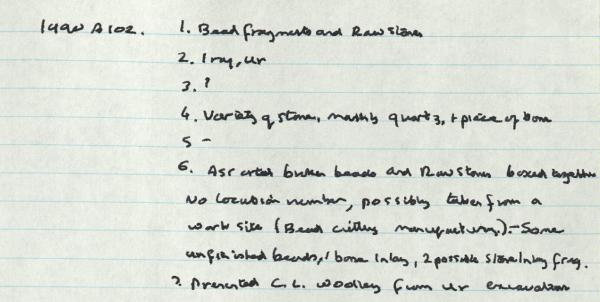 A102. 1. Bead fragments and Raw stones
2. Iraq, Ur
3. ?
4. Variety of stones, mostly quartz, + piece of bone
5 -
6. Assorted broken beads and Raw stones boxed together
No location number, possibly taken from a
work site (Bead cutting manufacturing). - Some
unfinished beads, 1 bone Inlay, 2 possible stone Inlay frag.
7. Presented C. L. Woolley from Ur excavation